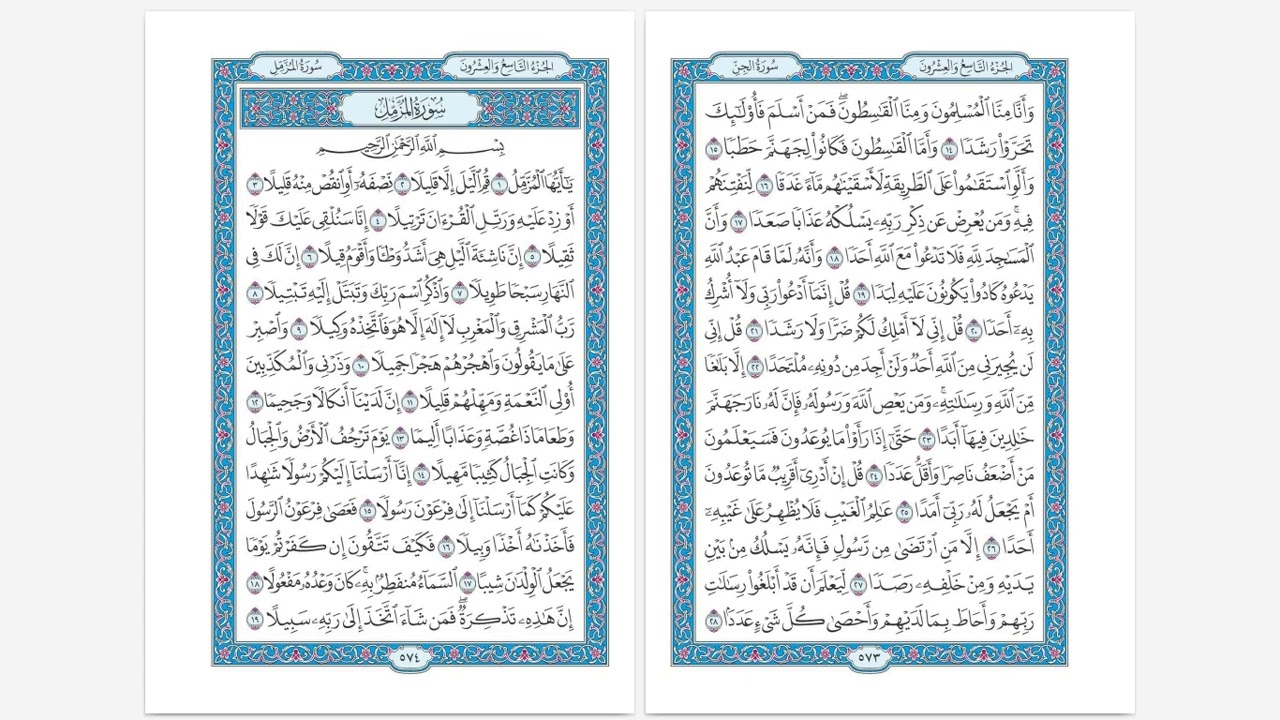 الجُزْءُ التَّاسِعُ وَالعِشْرُونَ
سُورَةُ الجِنِّ
وَأَنَّا مِنَّا ٱلْمُسْلِمُونَ وَمِنَّا ٱلْقَٰسِطُونَۖ فَمَنْ أَسْلَمَ فَأُوْلَٰٓئِكَ
تَحَرَّوْاْ رَشَدٗا ١٤ وَأَمَّا ٱلْقَٰسِطُونَ فَكَانُواْ لِجَهَنَّمَ حَطَبٗا ١٥
وَأَلَّوِ ٱسْتَقَٰمُواْ عَلَى ٱلطَّرِيقَةِ لَأَسْقَيْنَٰهُم مَّآءً غَدَقٗا ١٦ لِّنَفْتِنَهُمْ
فِيهِۚ وَمَن يُعْرِضْ عَن ذِكْرِ رَبِّهِۦ يَسْلُكْهُ عَذَابٗا صَعَدٗا ١٧ وَأَنَّ
ٱلْمَسَٰجِدَ لِلَّهِ فَلَا تَدْعُواْ مَعَ ٱللَّهِ أَحَدٗا ١٨ وَأَنَّهُۥ لَمَّا قَامَ عَبْدُ ٱللَّهِ
يَدْعُوهُ كَادُواْ يَكُونُونَ عَلَيْهِ لِبَدٗا ١٩ قُلْ إِنَّمَآ أَدْعُواْ رَبِّي وَلَآ أُشْرِكُ
بِهِۦٓ أَحَدٗا ٢٠ قُلْ إِنِّي لَآ أَمْلِكُ لَكُمْ ضَرّٗا وَلَا رَشَدٗا ٢١ قُلْ إِنِّي
لَن يُجِيرَنِي مِنَ ٱللَّهِ أَحَدٞ وَلَنْ أَجِدَ مِن دُونِهِۦ مُلْتَحَدًا ٢٢ إِلَّا بَلَٰغٗا
مِّنَ ٱللَّهِ وَرِسَٰلَٰتِهِۦۚ وَمَن يَعْصِ ٱللَّهَ وَرَسُولَهُۥ فَإِنَّ لَهُۥ نَارَ جَهَنَّمَ
خَٰلِدِينَ فِيهَآ أَبَدًا ٢٣ حَتَّىٰٓ إِذَا رَأَوْاْ مَا يُوعَدُونَ فَسَيَعْلَمُونَ
مَنْ أَضْعَفُ نَاصِرٗا وَأَقَلُّ عَدَدٗا ٢٤ قُلْ إِنْ أَدْرِيٓ أَقَرِيبٞ مَّا تُوعَدُونَ
أَمْ يَجْعَلُ لَهُۥ رَبِّيٓ أَمَدًا ٢٥ عَٰلِمُ ٱلْغَيْبِ فَلَا يُظْهِرُ عَلَىٰ غَيْبِهِۦٓ
أَحَدًا ٢٦ إِلَّا مَنِ ٱرْتَضَىٰ مِن رَّسُولٖ فَإِنَّهُۥ يَسْلُكُ مِنۢ بَيْنِ
يَدَيْهِ وَمِنْ خَلْفِهِۦ رَصَدٗا ٢٧ لِّيَعْلَمَ أَن قَدْ أَبْلَغُواْ رِسَٰلَٰتِ
رَبِّهِمْ وَأَحَاطَ بِمَا لَدَيْهِمْ وَأَحْصَىٰ كُلَّ شَيْءٍ عَدَدَۢا ٢٨
٥٧٣
الجُزْءُ التَّاسِعُ وَالعِشْرُونَ
سُورَةُ المُزَّمِّلِ
سُورَةُ المُزَّمِّلِ
بِسْمِ ٱللَّهِ ٱلرَّحْمَٰنِ ٱلرَّحِيمِ
يَٰٓأَيُّهَا ٱلْمُزَّمِّلُ ١ قُمِ ٱلَّيْلَ إِلَّا قَلِيلٗا ٢ نِّصْفَهُۥٓ أَوِ ٱنقُصْ مِنْهُ قَلِيلًا ٣
أَوْ زِدْ عَلَيْهِ وَرَتِّلِ ٱلْقُرْءَانَ تَرْتِيلًا ٤ إِنَّا سَنُلْقِي عَلَيْكَ قَوْلٗا
ثَقِيلًا ٥ إِنَّ نَاشِئَةَ ٱلَّيْلِ هِيَ أَشَدُّ وَطْـٔٗا وَأَقْوَمُ قِيلًا ٦ إِنَّ لَكَ فِي
ٱلنَّهَارِ سَبْحٗا طَوِيلٗا ٧ وَٱذْكُرِ ٱسْمَ رَبِّكَ وَتَبَتَّلْ إِلَيْهِ تَبْتِيلٗا ٨
رَّبُّ ٱلْمَشْرِقِ وَٱلْمَغْرِبِ لَآ إِلَٰهَ إِلَّا هُوَ فَٱتَّخِذْهُ وَكِيلٗا ٩ وَٱصْبِرْ
عَلَىٰ مَا يَقُولُونَ وَٱهْجُرْهُمْ هَجْرٗا جَمِيلٗا ١٠ وَذَرْنِي وَٱلْمُكَذِّبِينَ
أُوْلِي ٱلنَّعْمَةِ وَمَهِّلْهُمْ قَلِيلًا ١١ إِنَّ لَدَيْنَآ أَنكَالٗا وَجَحِيمٗا ١٢
وَطَعَامٗا ذَا غُصَّةٖ وَعَذَابًا أَلِيمٗا ١٣ يَوْمَ تَرْجُفُ ٱلْأَرْضُ وَٱلْجِبَالُ
وَكَانَتِ ٱلْجِبَالُ كَثِيبٗا مَّهِيلًا ١٤ إِنَّآ أَرْسَلْنَآ إِلَيْكُمْ رَسُولٗا شَٰهِدًا
عَلَيْكُمْ كَمَآ أَرْسَلْنَآ إِلَىٰ فِرْعَوْنَ رَسُولٗا ١٥ فَعَصَىٰ فِرْعَوْنُ ٱلرَّسُولَ
فَأَخَذْنَٰهُ أَخْذٗا وَبِيلٗا ١٦ فَكَيْفَ تَتَّقُونَ إِن كَفَرْتُمْ يَوْمٗا
يَجْعَلُ ٱلْوِلْدَٰنَ شِيبًا ١٧ ٱلسَّمَآءُ مُنفَطِرُۢ بِهِۦۚ كَانَ وَعْدُهُۥ مَفْعُولًا ١٨
إِنَّ هَٰذِهِۦ تَذْكِرَةٞۖ فَمَن شَآءَ ٱتَّخَذَ إِلَىٰ رَبِّهِۦ سَبِيلًا ١٩
٥٧٤